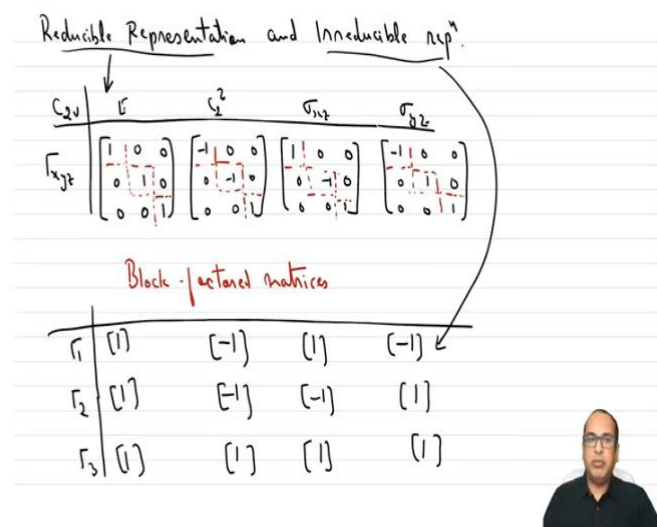 Reducible Representation and Irreducible repⁿ.
C₂ᵥ E C₂ᶻ σₓz σyz
Γxyz [1 0 0 [-1 0 0 [1 0 0 [-1 0 0
0 1 0 0 -1 0 0 -1 0 0 1 0
0 0 1] 0 0 1] 0 0 1] 0 0 1]
Block-factored matrices
Γ₁ [1] [-1] [1] [-1]
Γ₂ [1] [-1] [-1] [1]
Γ₃ [1] [1] [1] [1]